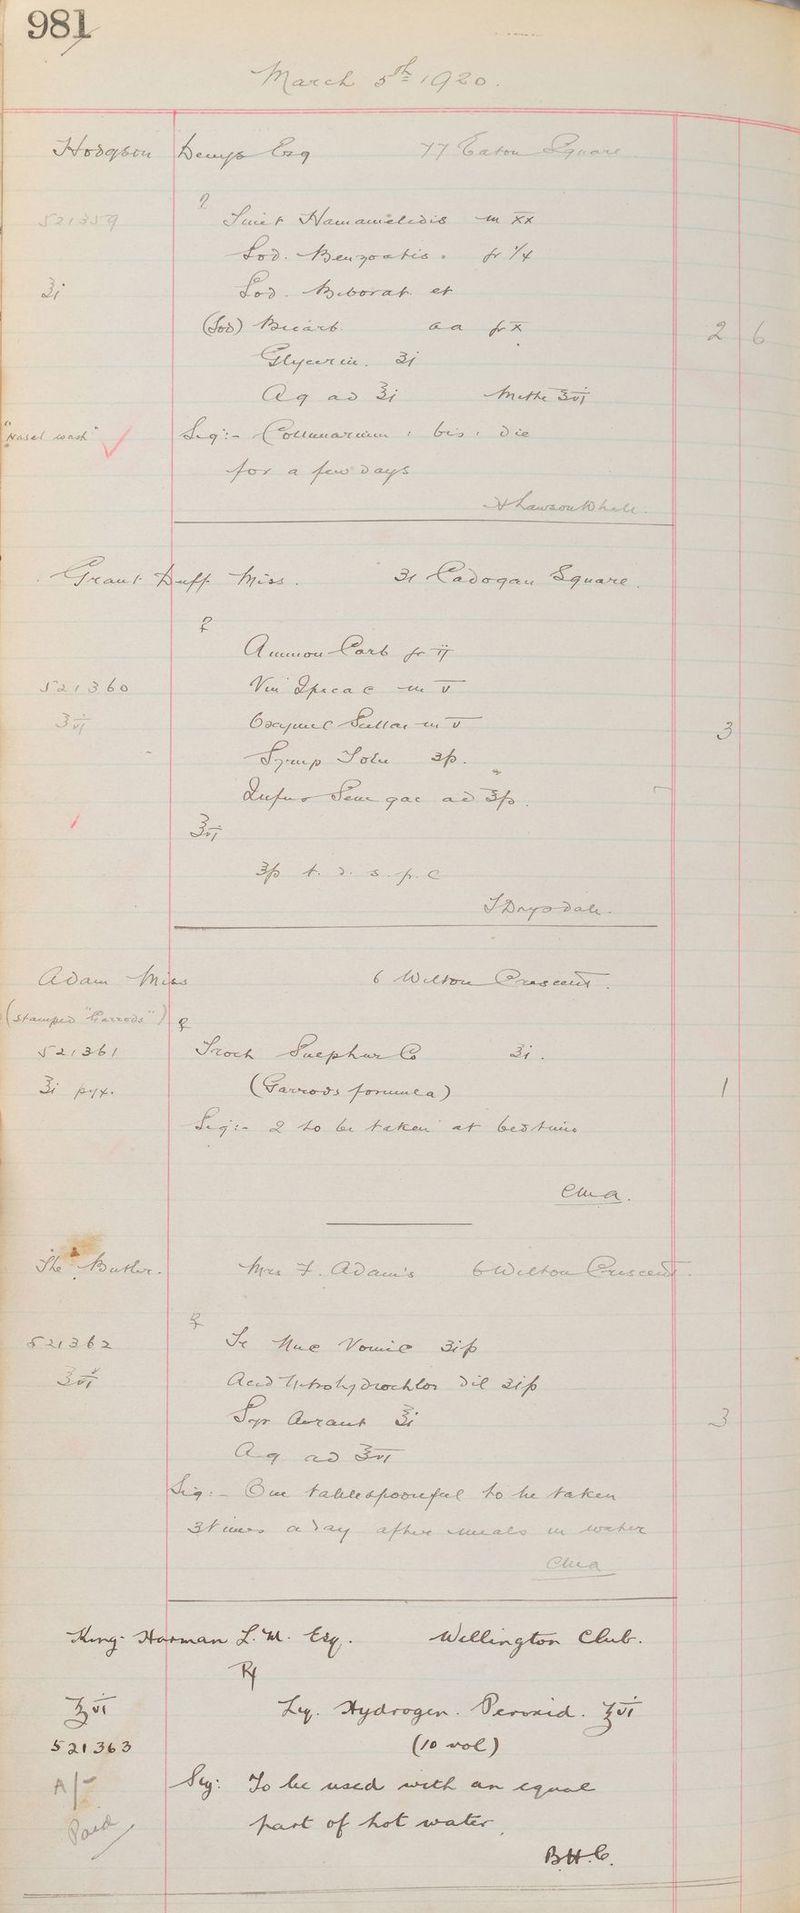 981
March 5th 1920.
Hodgson Denys Esq 77 Eaton Square
521359 Tinct Hamamelidis m xx
Sod. Benzoatis. gr 1/4
℥i Sod. Biborat. et
(Sod) Bicarb. aa gr x 2 6
Glycerin. ʒi
Aq ad ℥i Mitte ℥vi
"Nasal wash" Sig:- Collunarium, bis, die
for a few days
Grant Duff Miss. 31 Cadogan Square.
℞
Ammon Carb gr ii
521360 Vin Ipecac m v
℥vi Oxymel Scillae m v 3
Syrup Tolu ʒß.
Infus Senegae ad ℥ß.
℥vi
℥ß t. d. s. p. c
T Drysdale.
Adam Miss 6 Wilton Crescent.
(stamped "Garrods") ℞
521361 Troch Sulphur Co ℥i.
℥i pyx. (Garrods formula) 1
Sig:- 2 to be taken at bedtime
CMA.
The Butler. Mrs F. Adam's 6 Wilton Crescent.
℞
521362 Tr Nuc Vomic ʒiß
℥vi Acid Nitrohydrochlor Dil ʒiß
Syr Aurant ℥i 3
Aq ad ℥vi
Sig:- One tablespoonful to be taken
3 times a day after meals in water
CMA
King-Harman L. M. Esq. Wellington Club.
℞
℥vi Liq. Hydrogen. Peroxid. ℥vi
521363 (10 vol)
A/- Sig: To be used with an equal
Paid part of hot water.
B.H.C.